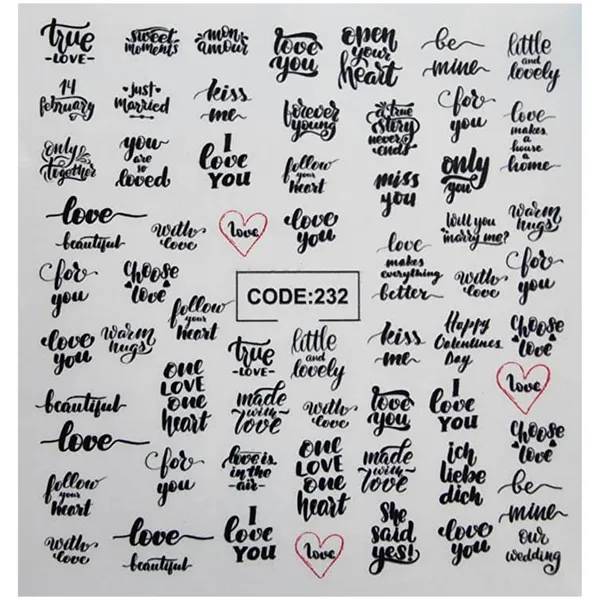 true
-LOVE-
sweet
moments
mon
amour
love
you
open
your
heart
be
mine
little
and
lovely
14
february
just
married
kiss
me
forever
young
a true
story
never
ends
for
you
love
makes
a
house
a
home
only
together
you
are so
loved
I
love
YOU
follow
your
heart
miss
you
only
you
love
beautiful
with
love
love
love
you
love
makes
everything
better
Will you
marry me?
warm
hugs
for
you
choose
love
follow
your
heart
CODE:232
with
love
for
you
love
you
warm
hugs
true
-LOVE-
little
and
lovely
kiss
me
Happy
Valentines
Day
choose
love
one
LOVE
one
heart
beautiful
love
made
with
love
with
love
love
you
I
love
YOU
love
choose
love
follow
your
heart
for
you
love is
in the
-air-
one
LOVE
one
heart
made
with
love
ich
liebe
dich
be
mine
with
love
love
beautiful
I
love
YOU
love
She
said
yes!
love
you
our
wedding